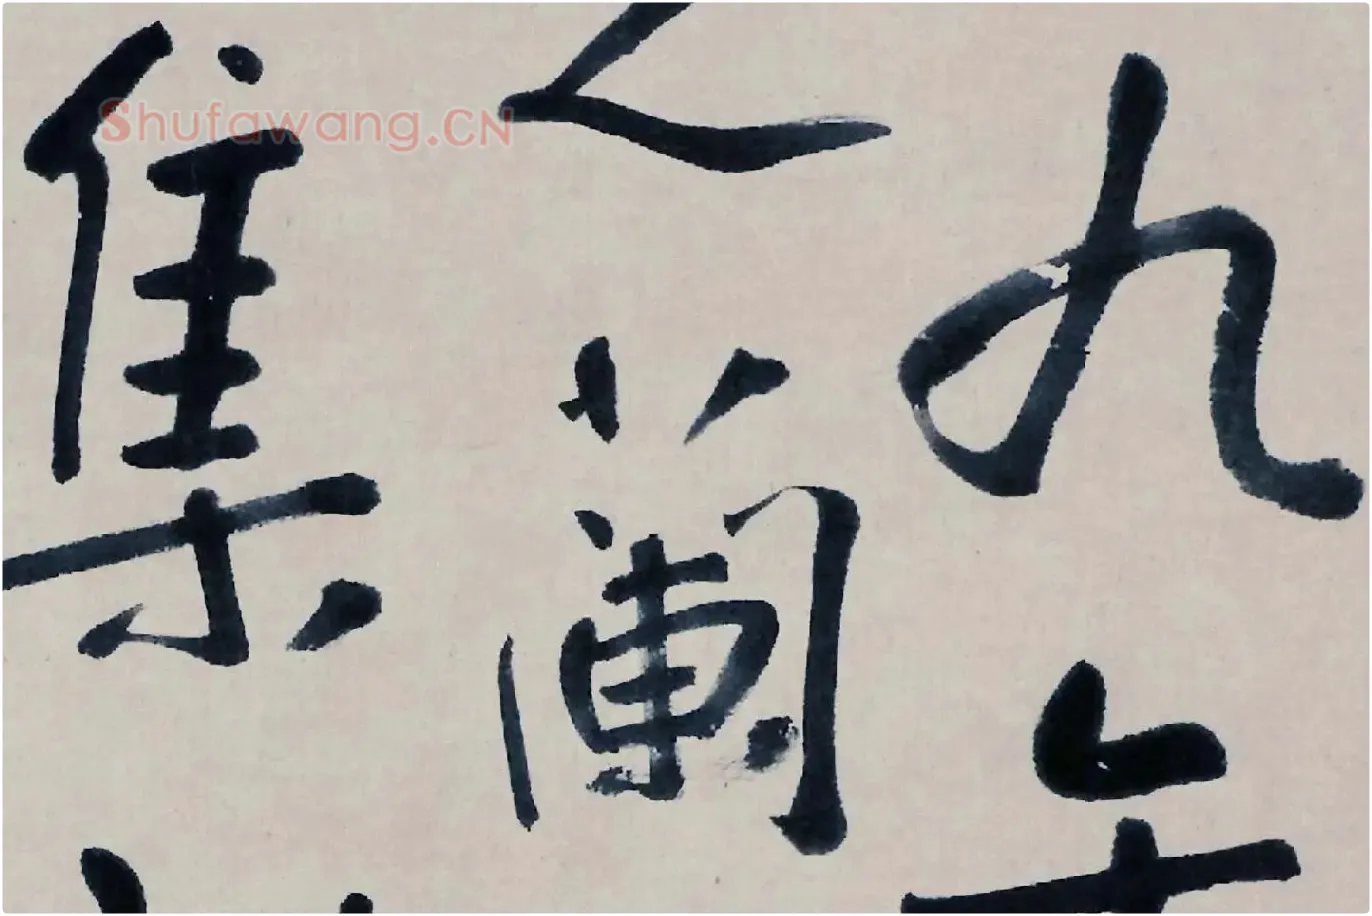 九
之蘭
集
Shufawang.CN